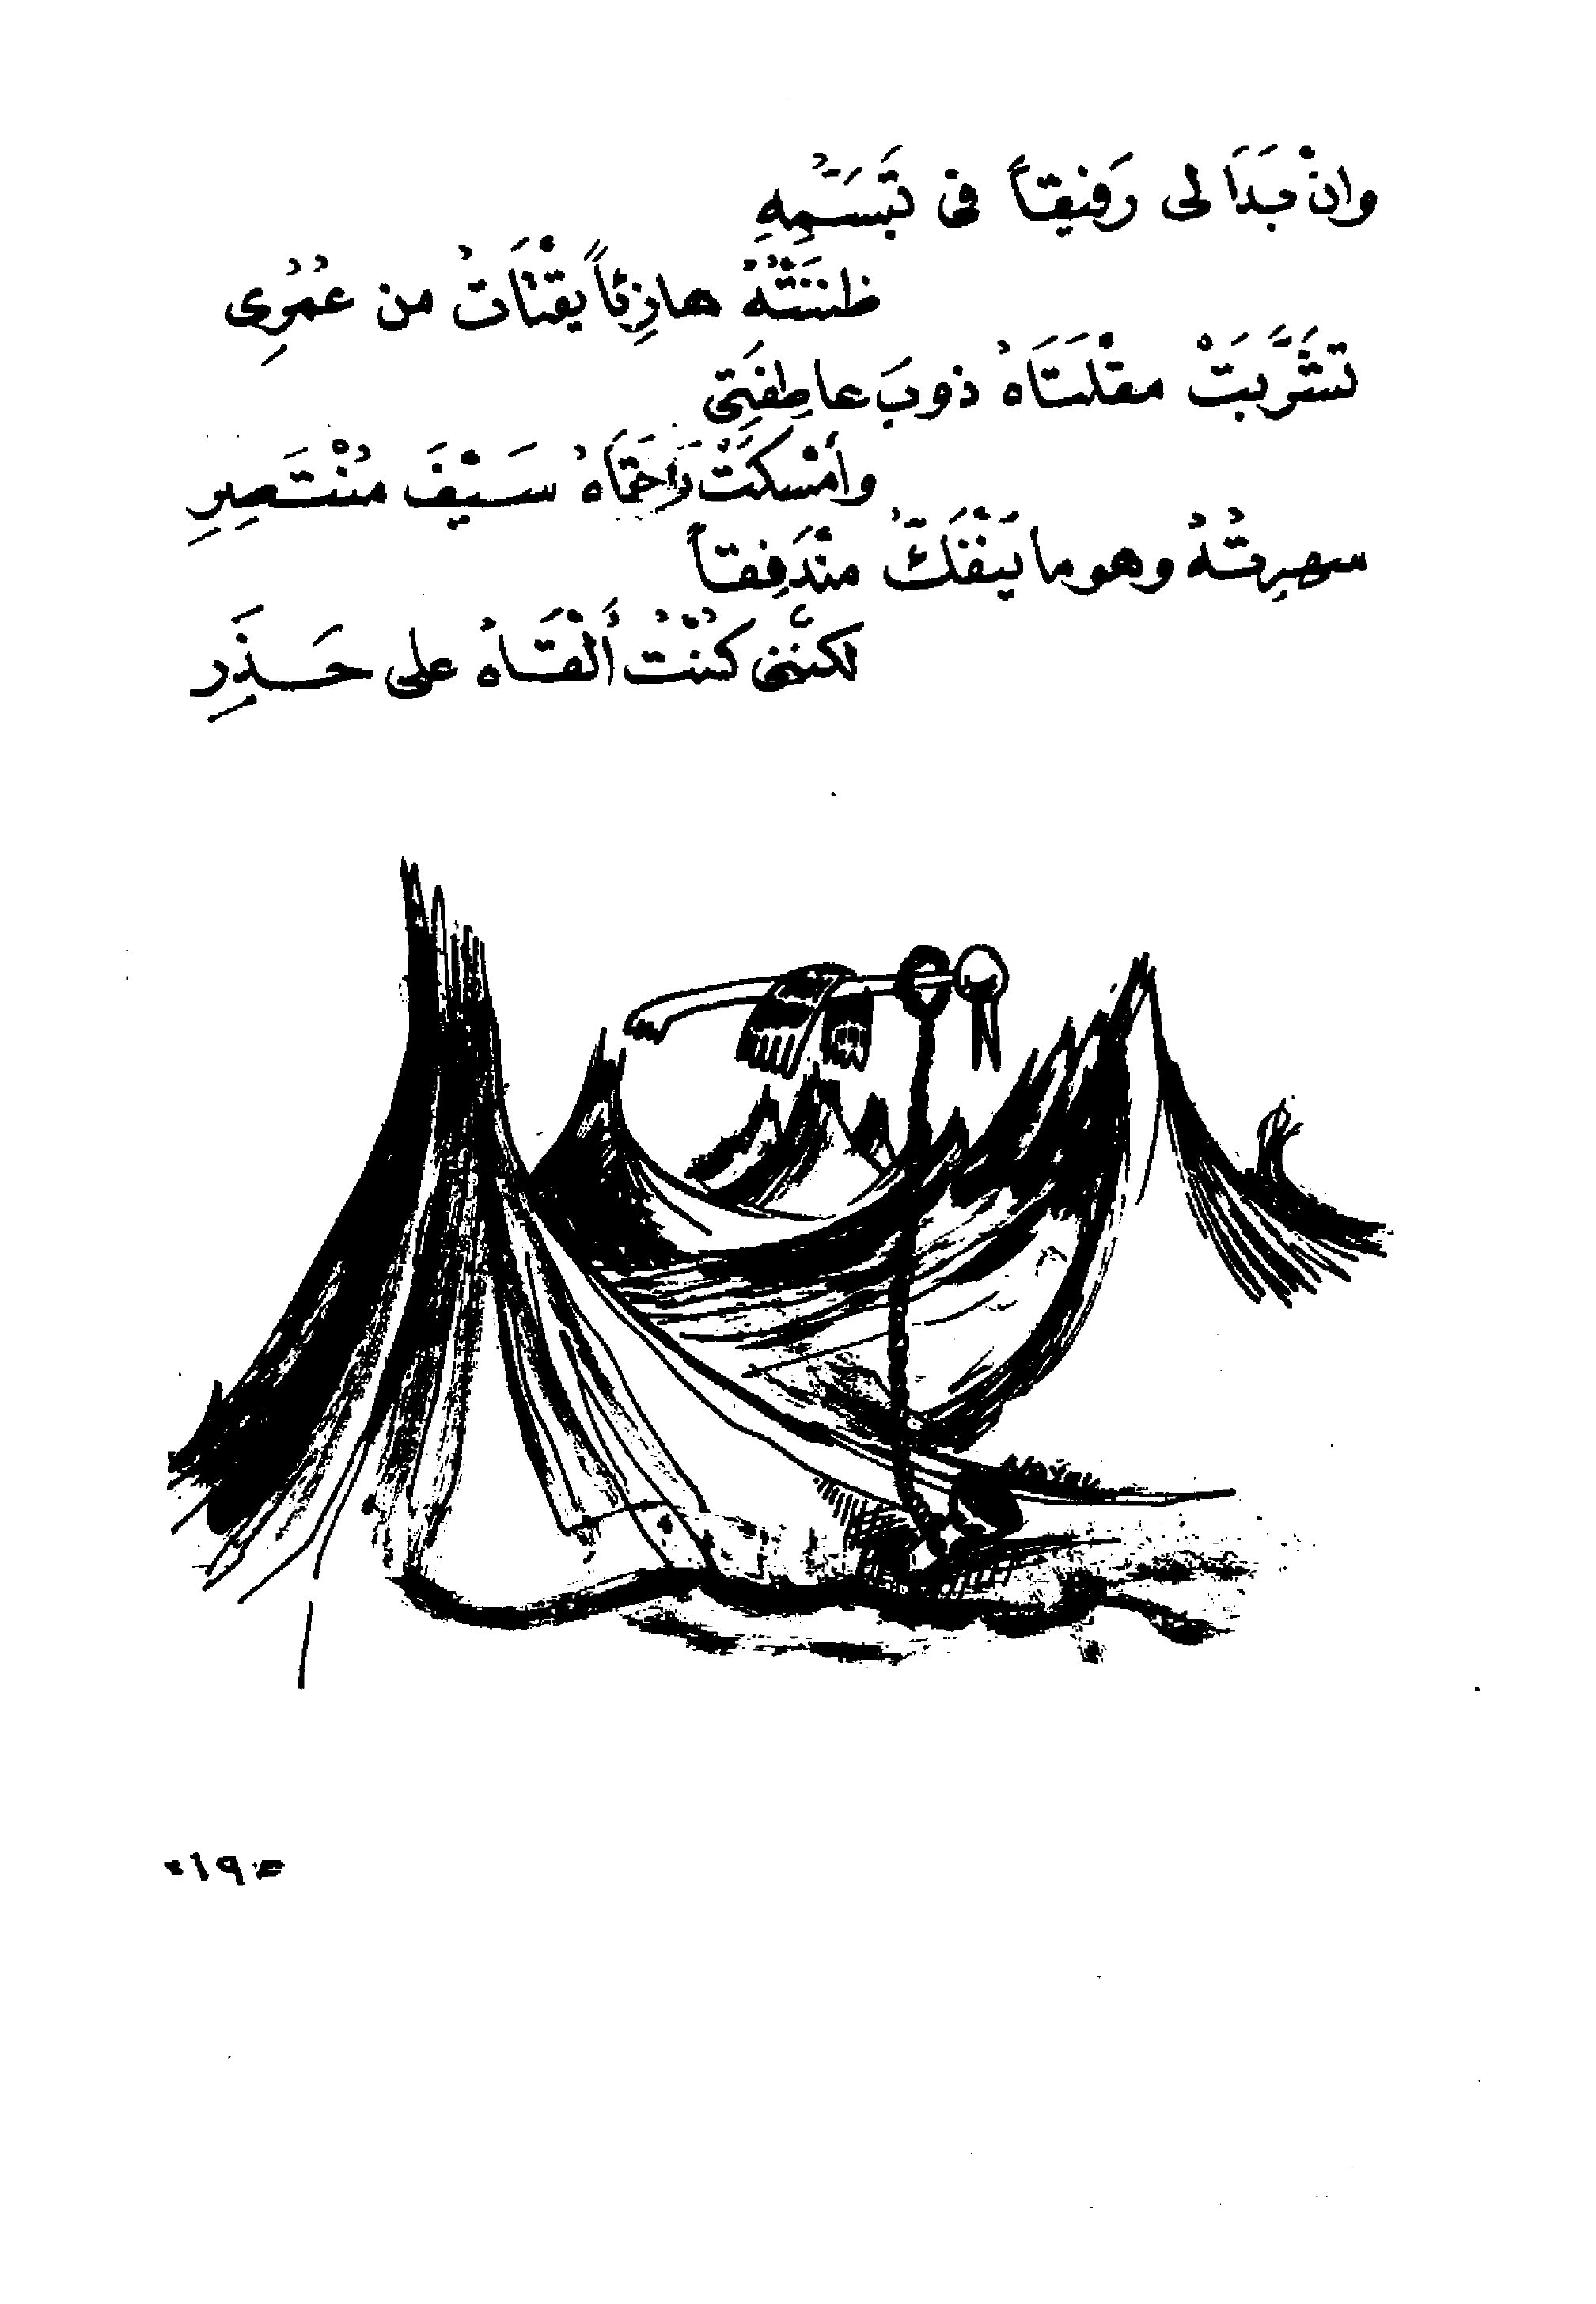 وانْ بَدَا لى رَفيقاً فى تَبَسُّمِهِ
ظننَتْهُ هازِئاً يقْتَاتُ من عُمُرِى
تشَرَّبَتْ مقْلَتَاهُ ذوبَ عاطِفَتِى
وأمْسكَتْ رَاحَتَاهُ سَيْفَ مُنْتَصِرِ
سهِرتُهُ وهو ما يَنْفَكُّ منْدَفِقاً
لكنَّنى كُنْتُ ألْقَاهُ على حَذَرِ
١٩